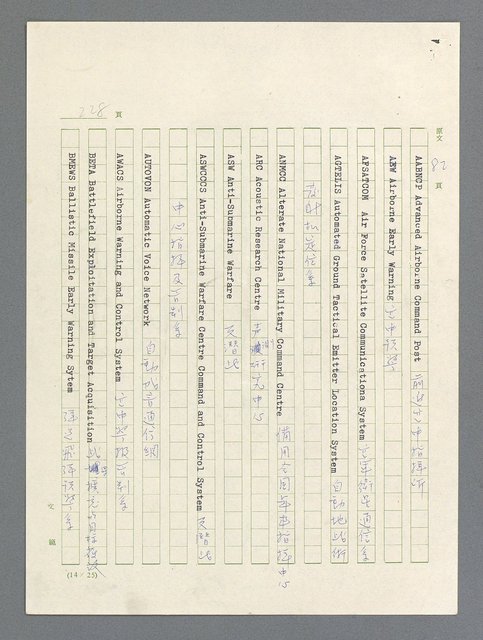 原文 82 頁
AABNCP Advanced Airborne Command Post 前進空中指揮所
AEW Airborne Early Warning 空中預警
AFSATCOM Air Force Satellite Communications System 空軍衛星通信系
AGTELIS Automated Ground Tactical Emitter Location System 自動地面戰術
發射机定位系
ANMCC Alterate National Military Command Centre 備用全國軍事指揮中心
ARC Acoustic Research Centre 声 研究中心
ASW Anti-Submarine Warfare 反潛戰
ASWCCCS Anti-Submarine Warfare Centre Command and Control System 反潛戰
中心指揮及管制系
AUTOVON Automatic Voice Network 自動語音通信網
AWACS Airborne Warning and Control System 空中警報管制系
BETA Battlefield Exploitation and Target Acquisition 戰場
BMEWS Ballistic Missile Early Warning Sytem 彈道飛彈預警系
228 頁
文範
(14×25)